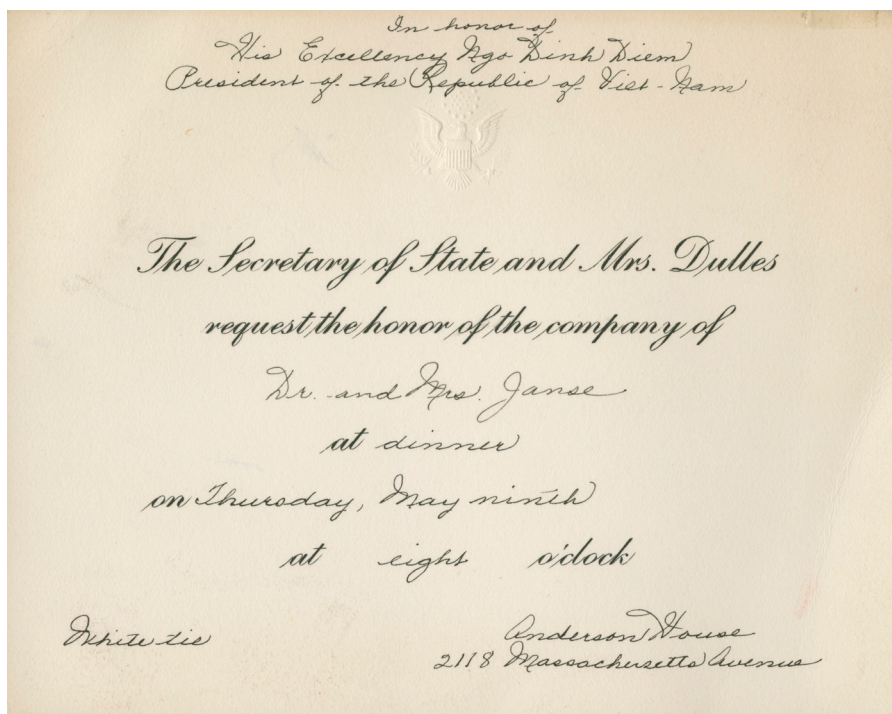 In honor of
His Excellency Ngo Dinh Diem
President of the Republic of Viet-Nam
The Secretary of State and Mrs. Dulles
request the honor of the company of
Dr. and Mrs. Janse
at dinner
on Thursday, May ninth
at eight o'clock
White tie
Anderson House
2118 Massachusetts Avenue